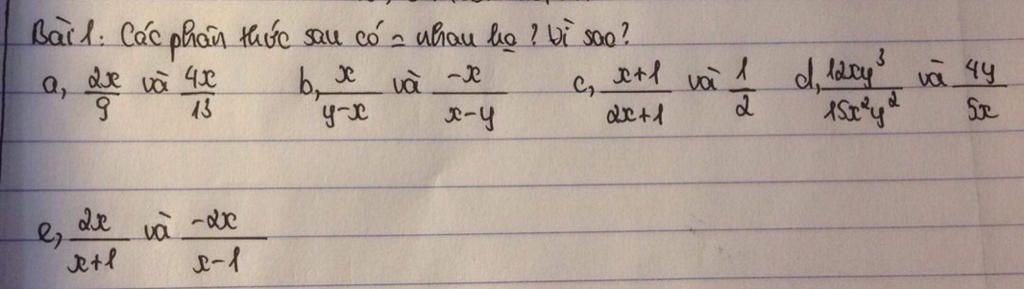 Bài 1: Các phân thức sau có = nhau ko? Vì sao?
a, 2x/9 và 4x/13 b, x/y-x và -x/x-y c, x+1/2x+1 và 1/2 d, 12xy³/15x²y² và 4y/5x
e, 2x/x+1 và -2x/x-1